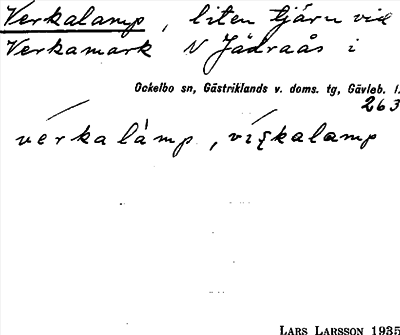 Verkalamp, liten tjärn vid
Verkamark N Jädraås i
Ockelbo sn, Gästriklands v. doms. tg, Gävleb. l.
263
vérkalàmp, víşkalamp
LARS LARSSON 1935